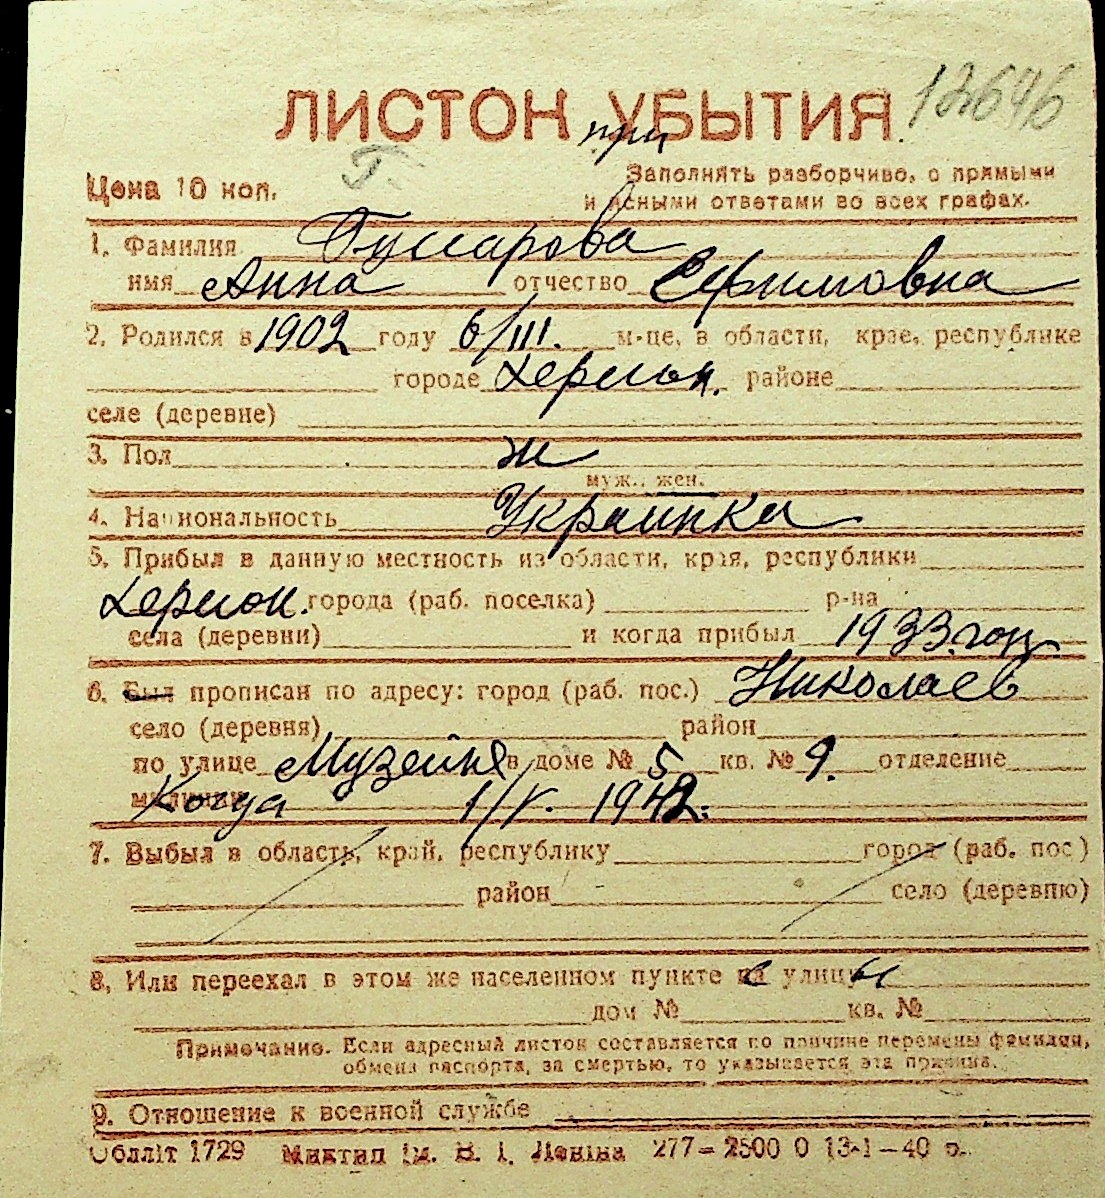 12646
ЛИСТОК УБЫТИЯ.
при
Г.
Цена 10 коп.
Заполнять разборчиво, с прямыми
и ясными ответами во всех графах.
1. Фамилия Гусарова
имя Анна отчество Ефимовна
2. Родился в 1902 году 6/III. м-це, в области, крае, республике
городе Херсон. районе
селе (деревне)
3. Пол ж
муж., жен.
4. Национальность Украинка
5. Прибыл в данную местность из области, края, республики
Херсон. города (раб. поселка) р-на
села (деревни) и когда прибыл 1933 год.
6. Был прописан по адресу: город (раб. пос.) Николаев
село (деревня) район
по улице Музейня в доме № 5 кв. № 9. отделение
милиции Когда 1/V. 1942.
7. Выбыл в область, край, республику город (раб. пос)
район село (деревню)
8, Или переехал в этом же населенном пункте с улицы
дом № кв. №
Примечание. Если адресный листок составляется по причине перемены фамилии,
обмена паспорта, за смертью, то указывается эта причина.
9. Отношение к военной службе
Облліт 1729 Миктип ім. В. І. Леніна 277—2500 0 13-1—40 р.